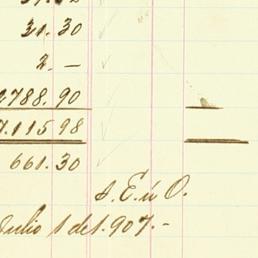 31.30
2.—
788.90
.115 98
661.30
S. E. ú O.
Julio 1 de 1.907.-